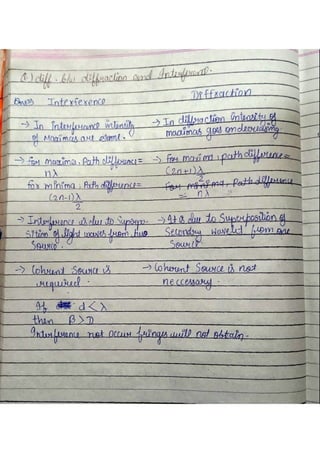 Q) diff. b/w diffraction and Interference.
Ans) Interference Diffraction
→ In Interference intensity → In diffraction Intensity of
of Maximas are same. maximas goes on decreasing.
→ For maxima, Path difference = → For maxima, path difference =
nλ (2n+1)λ/2
for minima, Path difference = For minima, Path difference
(2n-1)λ = nλ
2
→ Interference is due to Superpo- → It is due to Superposition of
sition of light waves from two Secondry wavelet from one
Source. Source
→ Coherent Source is → Coherent Source is not
required. neccessary.
If d<λ
then β>D
Interference not occur fringes will not obtain.